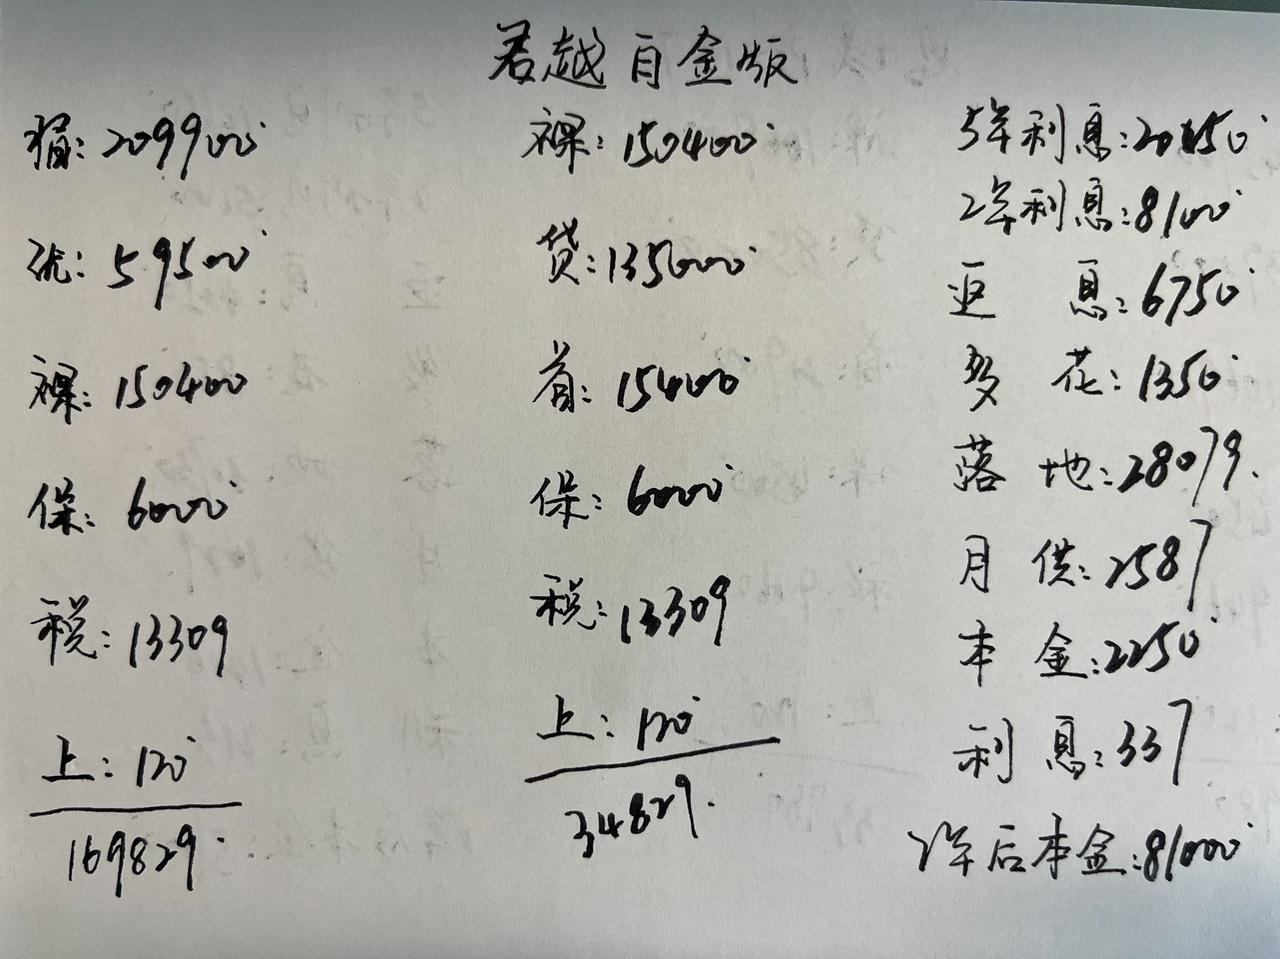 君越白金版
指:209900
优:59500
裸:150400
保:6000
税:13309
上:120
169829.
裸:150400
贷:135000
首:15400
保:6000
税:13309
上:120
34829.
5年利息:20250
2年利息:8100
返 息:6750
多 花:1350
落 地:28079.
月 供:2587
本 金:2250
利 息:337
2年后本金:81000